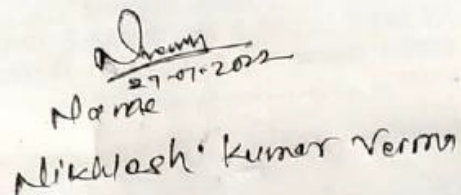 27-07-2022
Name
Nikhlesh Kumar Verma